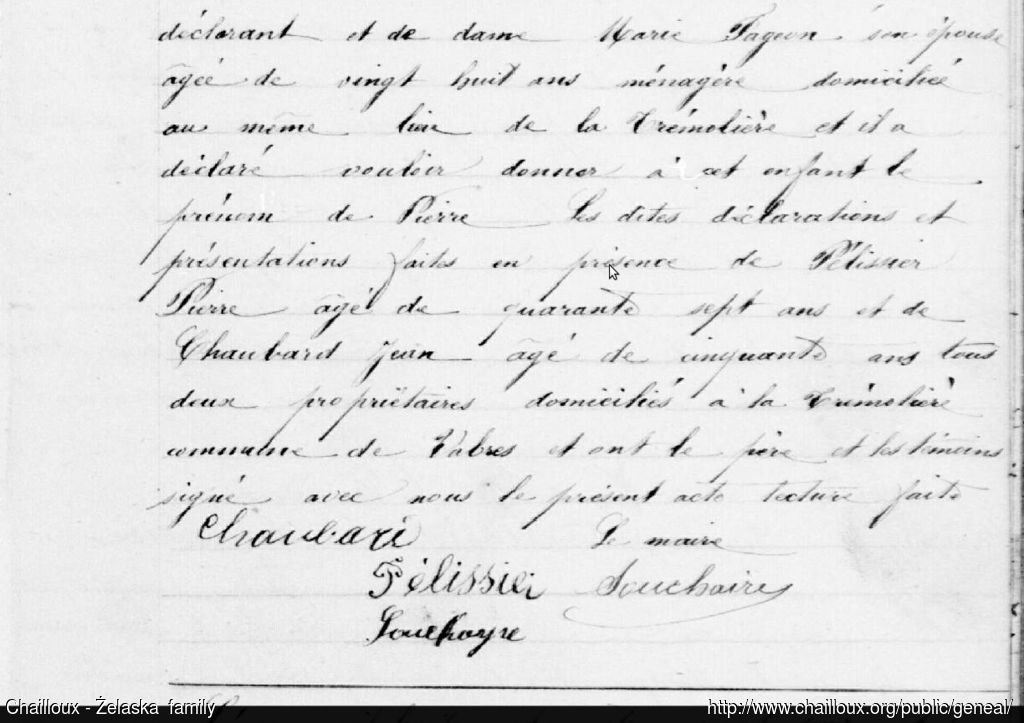 déclarant et de dame Marie Fageon son épouse
âgée de vingt huit ans ménagère domiciliée
au même lieu de la Trémolière et il a
déclaré vouloir donner à cet enfant le
prénom de Pierre Les dites déclarations et
présentations faites en présence de Pélissier
Pierre âgé de quarante sept ans et de
Chaubard Jean âgé de cinquante ans tous
deux propriétaires domiciliés à la Trémolière
commune de Vabres et ont le père et les témoins
signé avec nous le présent acte lecture faite
Chaubard Le maire
Pélissier Souchaire
Souchayre
Chailloux - Żelaska family http://www.chailloux.org/public/geneal/